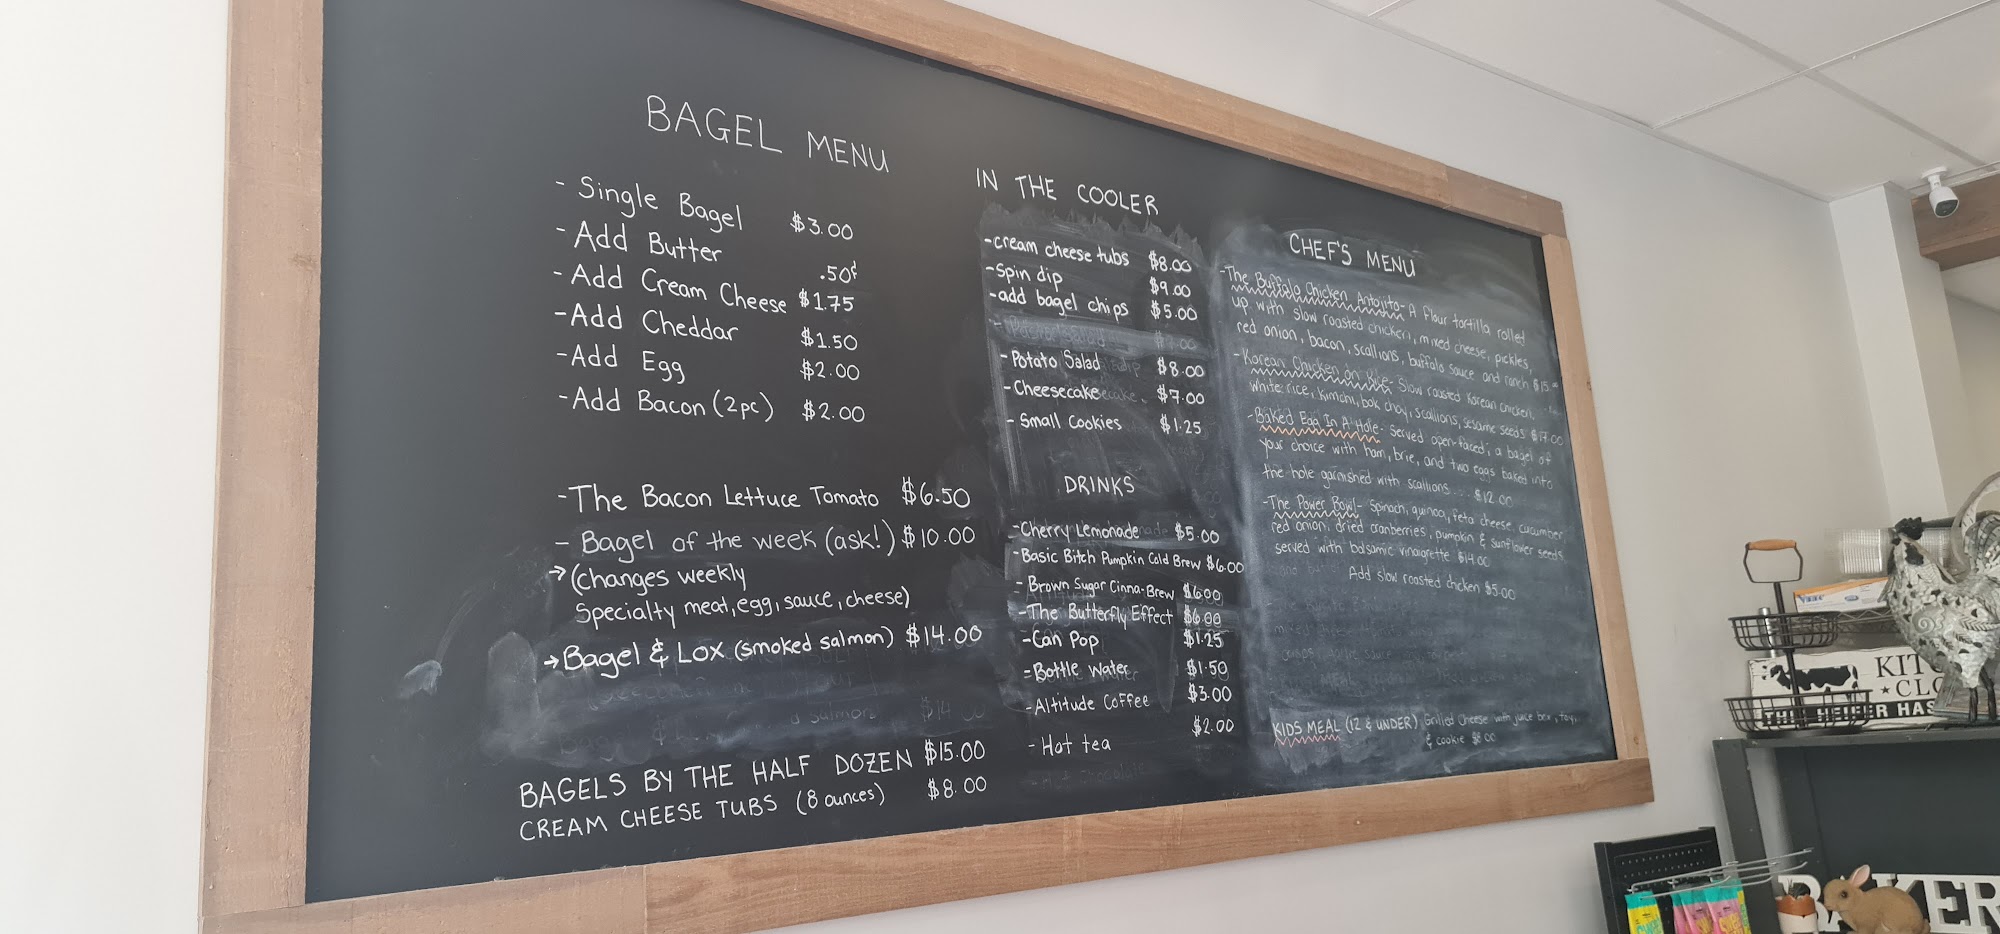 BAGEL MENU
- Single Bagel $3.00
- Add Butter .50¢
- Add Cream Cheese $1.75
- Add Cheddar $1.50
- Add Egg $2.00
- Add Bacon (2pc) $2.00
- The Bacon Lettuce Tomato $6.50
- Bagel of the week (ask!) $10.00
→ (changes weekly
Specialty meat, egg, sauce, cheese)
→ Bagel & Lox (smoked salmon) $14.00
BAGELS BY THE HALF DOZEN $15.00
CREAM CHEESE TUBS (8 ounces) $8.00
IN THE COOLER
- cream cheese tubs $8.00
- Spin dip $9.00
- add bagel chips $5.00
- Potato Salad $8.00
- Cheesecake $7.00
- Small Cookies $1.25
DRINKS
- Cherry Lemonade $5.00
- Basic Bitch Pumpkin Cold Brew $6.00
- Brown Sugar Cinna-Brew $6.00
- The Butterfly Effect $6.00
- Can Pop $1.25
- Bottle Water $1.50
- Altitude Coffee $3.00
- Hot tea $2.00
CHEF'S MENU
- The Buffalo Chicken Antojito - A flour tortilla rolled
up with slow roasted chicken, mixed cheese, pickles,
red onion, bacon, scallions, buffalo sauce and ranch $15.00
- Korean Chicken on Rice - Slow roasted Korean chicken,
white rice, kimchi, bok choy, scallions, sesame seeds $17.00
- Baked Egg In A Hole - Served open-faced, a bagel of
your choice with ham, brie, and two eggs baked into
the hole garnished with scallions .... $12.00
- The Power Bowl - Spinach, quinoa, feta cheese, cucumber,
red onion, dried cranberries, pumpkin & sunflower seeds,
served with balsamic vinaigrette $14.00
Add slow roasted chicken $5.00
KIDS MEAL (12 & UNDER) Grilled cheese with juice box, toy,
& cookie $8.00
KIT
CLO
THE HEIFER HAS
BAKER